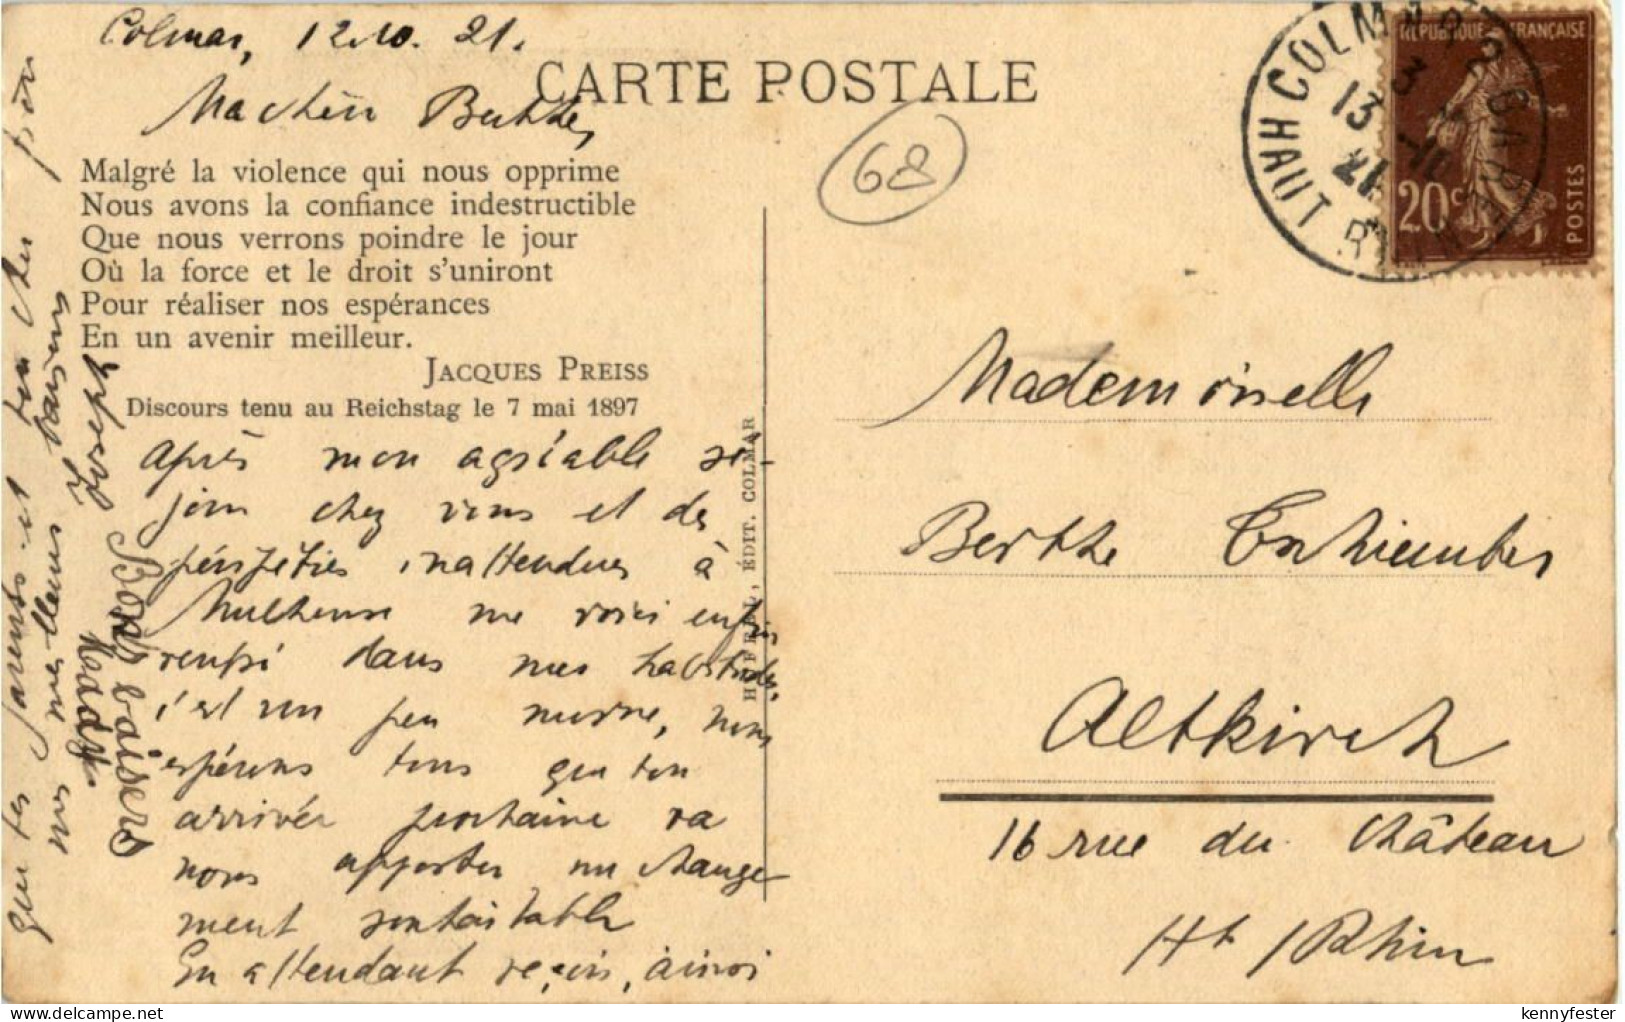 Colmar, 12.10.21.
CARTE POSTALE
Ma chère Berthe,
Malgré la violence qui nous opprime
Nous avons la confiance indestructible
Que nous verrons poindre le jour
Où la force et le droit s'uniront
Pour réaliser nos espérances
En un avenir meilleur.
JACQUES PREISS
Discours tenu au Reichstag le 7 mai 1897
Après mon agréable sé-
jour chez vous et des
péripéties inattendues à
Mulhouse me voici enfin
dans mes habitudes,
c'est un peu morne, nous
espérons tous que ton
arrivée prochaine va
nous apporter un change
ment souhaitable
En attendant reçois, ainsi
que tes parents et ton cher
nos meilleurs baisers
Joseph
Bons baisers
ÉDIT. COLMAR
68
COLMAR GARE
13
21
HAUT RHIN
RÉPUBLIQUE FRANÇAISE
20c
POSTES
Mademoiselle
Berthe
Altkirch
16 rue du Château
Ht Rhin
kennyfester